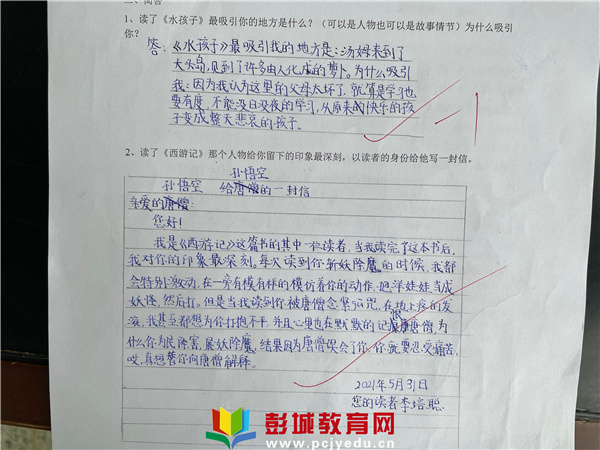 二、简答
1、读了《水孩子》最吸引你的地方是什么？（可以是人物也可以是故事情节）为什么吸引
你？
答：《水孩子》最吸引我的地方是：汤姆来到了
大头岛，见到了许多由人化成的萝卜。为什么吸引
我：因为我认为这里的父母太坏了，就算是学习也
要有度，不能没日没夜的学习，从原来的快乐的孩
子变成整天悲哀的孩子。
-1
2、读了《西游记》那个人物给你留下的印象最深刻，以读者的身份给他写一封信。
孙悟空
孙悟空 给唐僧的一封信
亲爱的唐僧：
您好！
我是《西游记》这篇书的其中一位读者，当我读完了这本书后，
我对你的印象最深刻。每次读到你斩妖除魔的时候，我都
会特别激动，在一旁有模有样的模仿着你的动作，把洋娃娃当成
妖怪，然后打。但是当我读到你被唐僧念紧箍咒，在地上疼的发
滚，我甚至都想为你打抱不平，并且心里也在默默的记恨唐僧，为
什么你为民除害，展妖除魔，结果因为唐僧误会了你，你就要忍受痛苦，
哎，真想替你向唐僧解释。
2021年5月31日
您的读者李培聪
彭城教育网
www.pcjyedu.cn